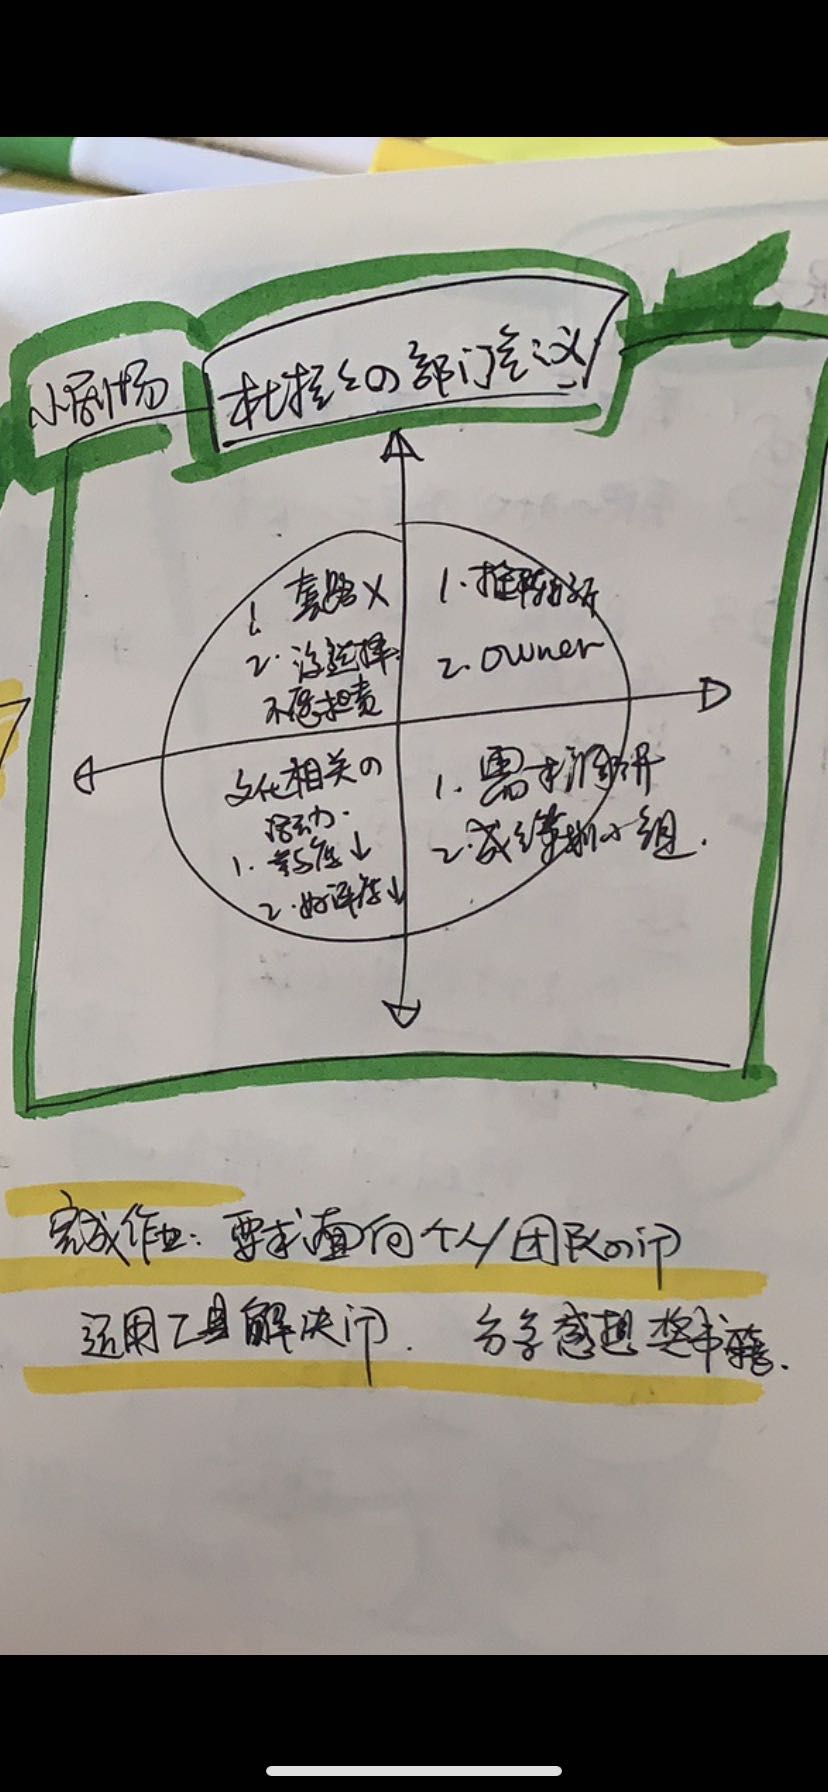 小剧场
杜拉拉の部门会议
1. 套路 X
2. 没选择
不愿担责
1. 推陈出新
2. owner
文化相关の
活动.
1. 参与度↓
2. 好评度↓
1. 需求调研
2. 成组.
完成作业: 要求面向个人/团队の
运用工具解决. 分享感想 奖书籍.